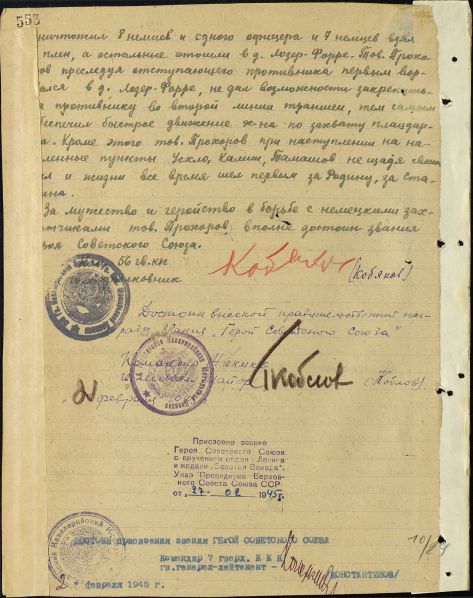 553
ничтожил 8 немцев и одного офицера и 7 немцев взял
плен, а остальные отошли в д. Лозер-Форре. Тов. Прохо-
ов преследуя отступающего противника первым вор-
ался в д. Лозер-Форре, не дал возможности закрепить-
а противнику во второй линии траншеи, тем самым
беспечил быстрое движение х-на по захвату плацдар-
а. Кроме этого тов. Прохоров при наступлении на на-
ленные пункты Уехло, Калиш, Балашов не щадя своих
ил и жизни все время шел первым за Родину, за Ста-
ина.
За мужество и геройство в борьбе с немецкими зах-
атчиками тов. Прохоров вполне достоин звания
роя Советского Союза.
56 гв. кп
ковник
(Кобяков)
Достоин высокой правительственной наг-
рады звания „Герой Советского Союза"
Командир
майор
Коблов
(Коблов)
февраля
Присвоено звание
Героя Советского Союза
с вручением ордена Ленина
и медали „Золотая Звезда".
Указ Президиума Верхов-
ного Совета Союза ССР
от 27-02 1945г.
ДОСТОИН присвоения звания ГЕРОЙ СОВЕТСКОГО СОЮЗА
Командир 7 гвард. К К К
гв. генерал-лейтенант -
/КОНСТАНТИНОВ/
2 февраля 1945 г.